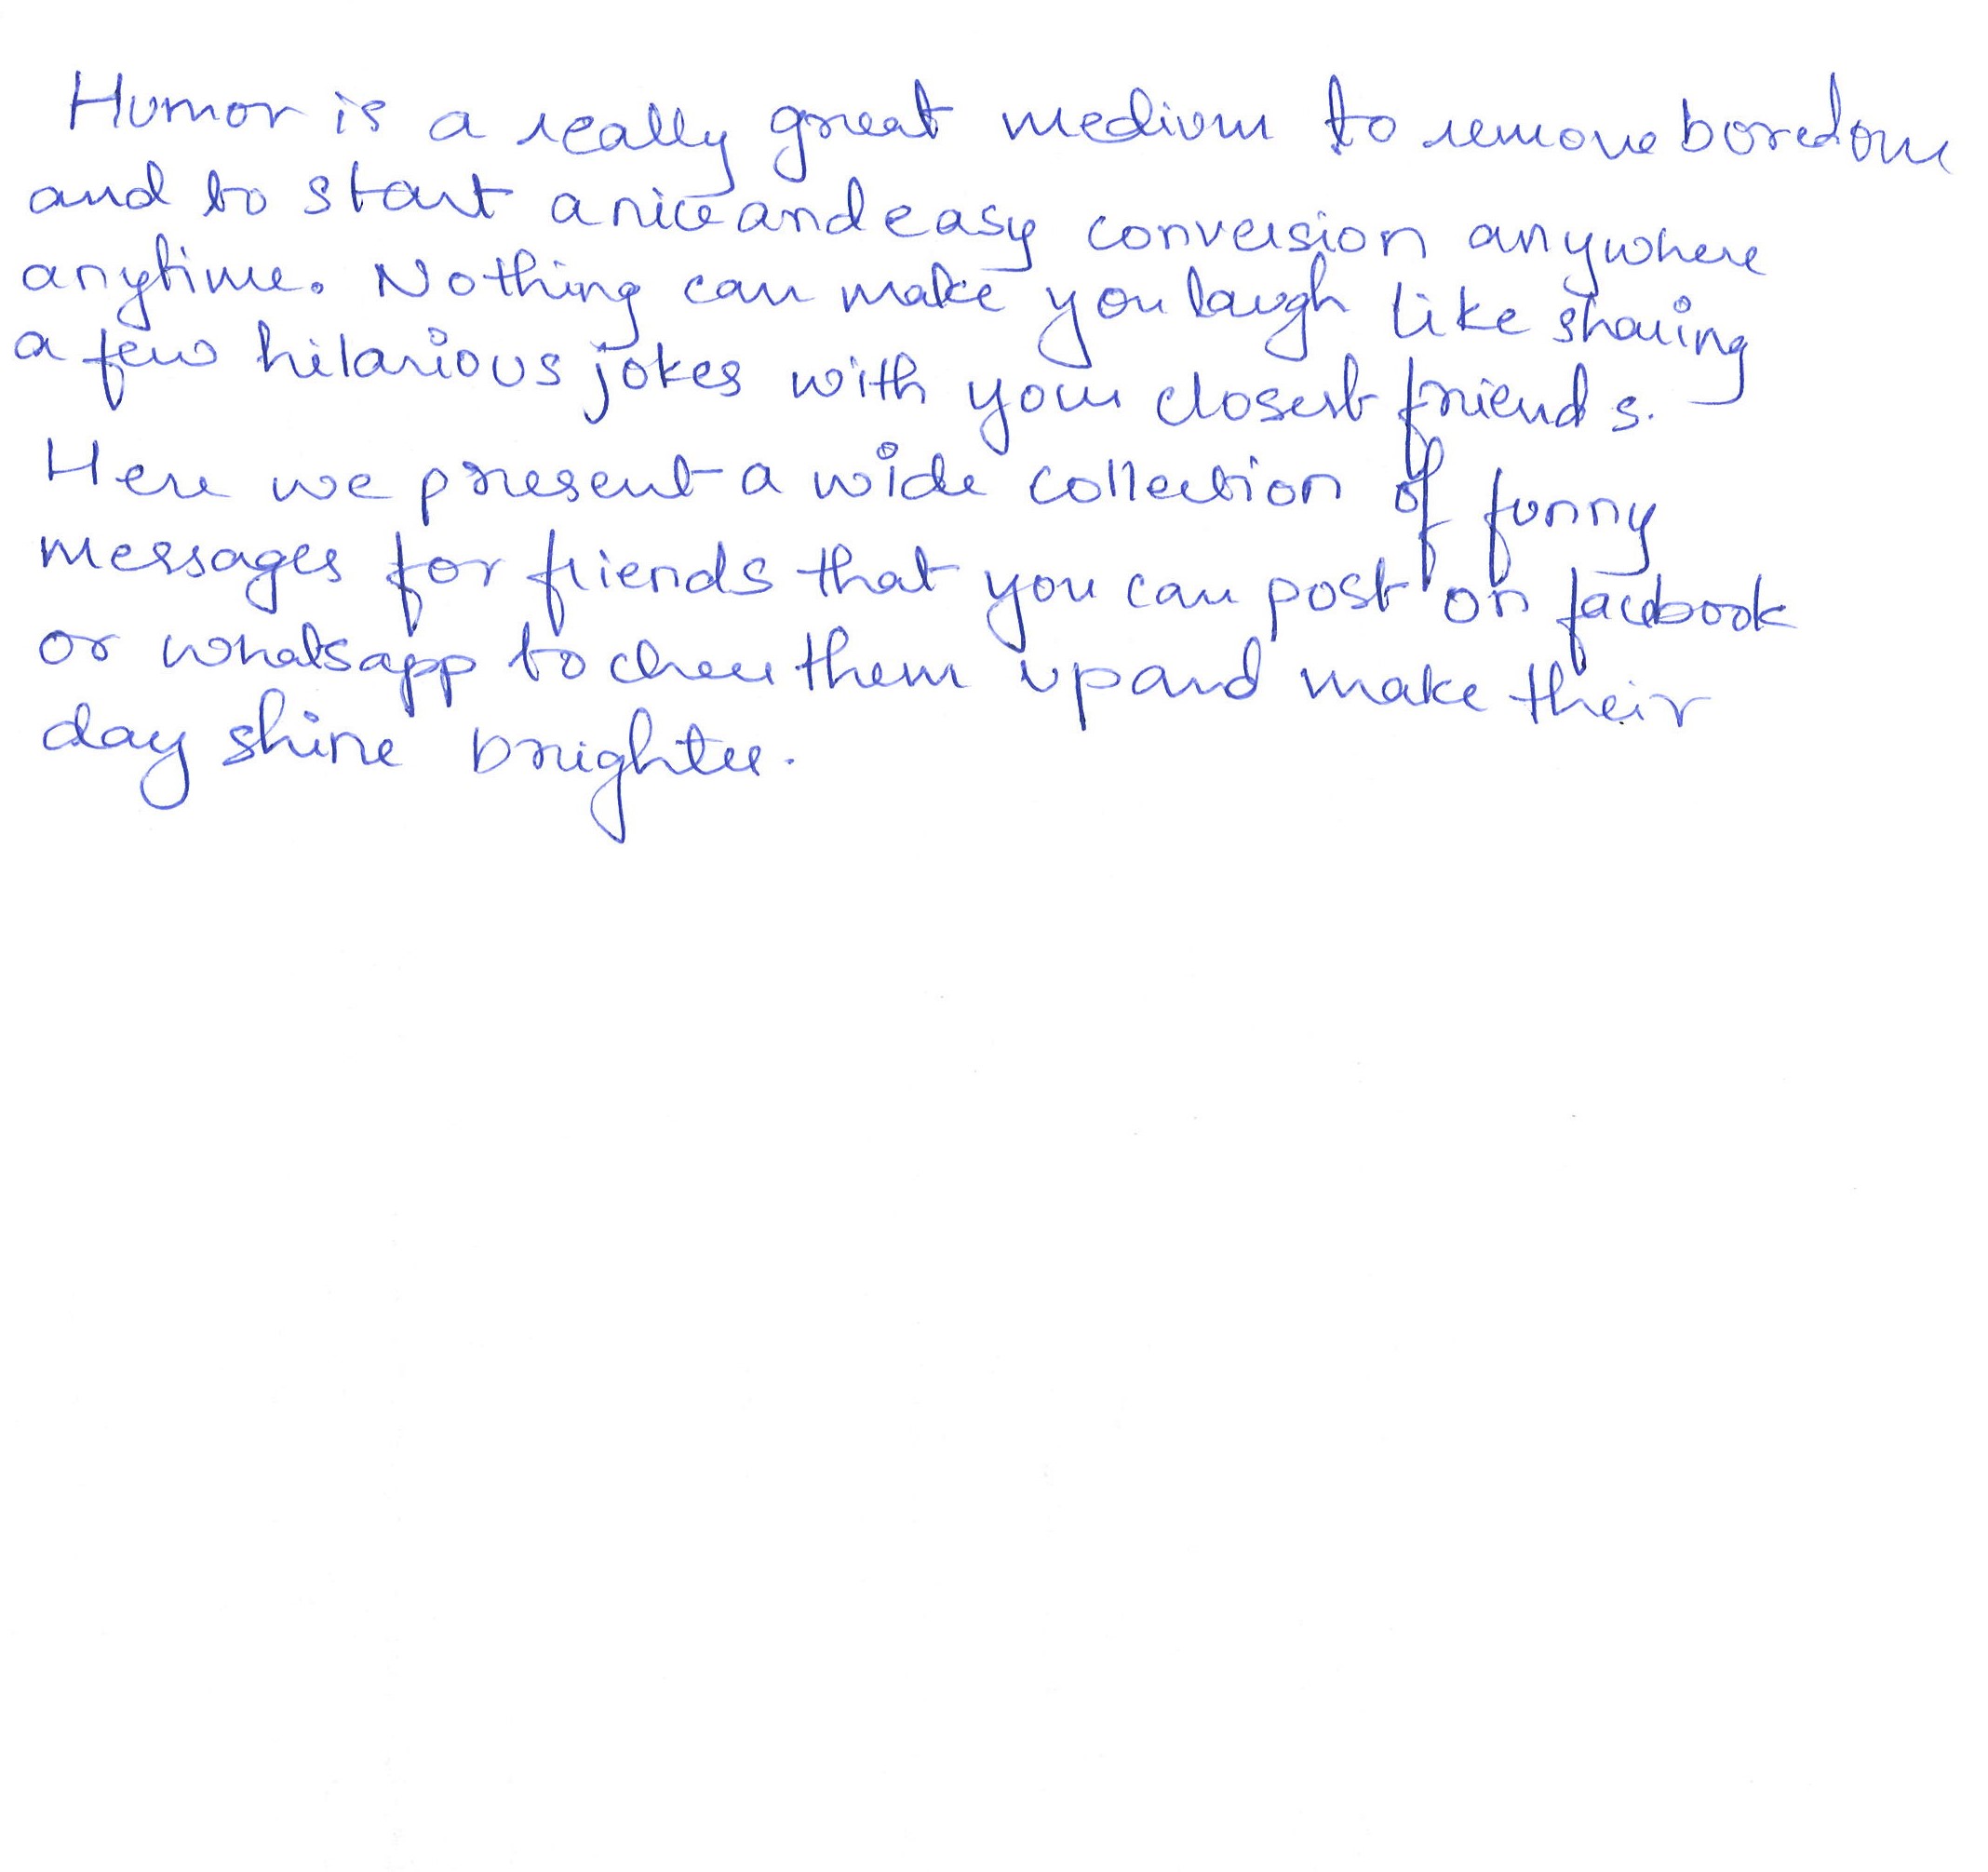 Humor is a really great medium to remove boredom
and to start a nice and easy conversion anywhere
anytime. Nothing can make you laugh like sharing
a few hilarious jokes with your closest friends.
Here we present a wide collection of funny
messages for friends that you can post on facebook
or whatsapp to cheer them up and make their
day shine brighter.